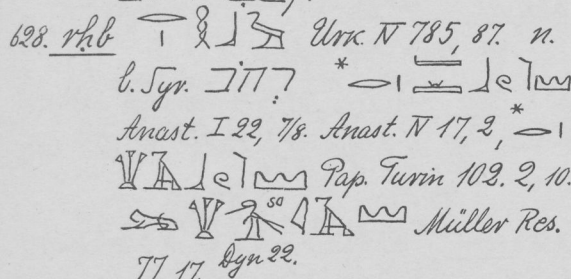 628. rḥb 𓂋𓏤𓎛𓃀 Urk. IV 785, 87. n.
l. Syr. רְחֹב *𓂋𓏤 𓃀𓏲𓌙𓈉
Anast. I 22, 7/8. Anast. IV 17, 2, *𓂋𓏤
𓃀𓏲𓌙𓈉 Pap. Turin 102. 2, 10.
𓈉 Müller Res.
77. 17. Dyn 22.